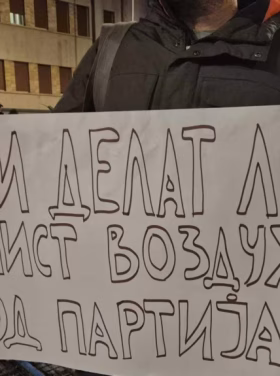 И ДЕЛАТ Л
ИСТ ВОЗДУХ
ОД ПАРТИЈА